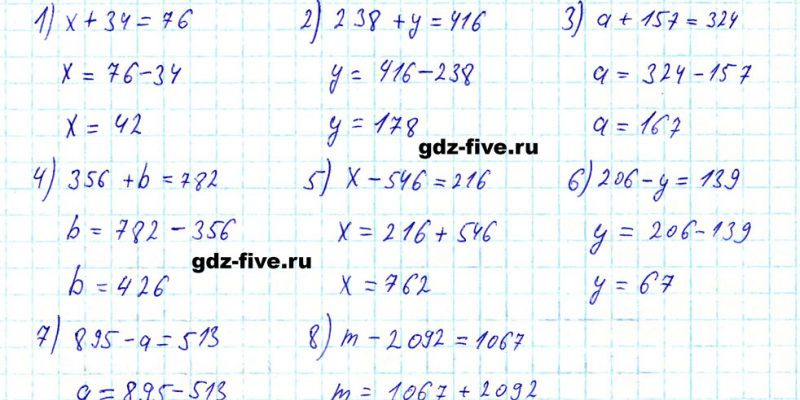 1) x + 34 = 76
x = 76 - 34
x = 42
2) 238 + y = 416
y = 416 - 238
y = 178
3) a + 157 = 324
a = 324 - 157
a = 167
gdz-five.ru
4) 356 + b = 782
b = 782 - 356
b = 426
gdz-five.ru
5) x - 546 = 216
x = 216 + 546
x = 762
6) 206 - y = 139
y = 206 - 139
y = 67
7) 895 - a = 513
a = 895 - 513
8) m - 2092 = 1067
m = 1067 + 2092